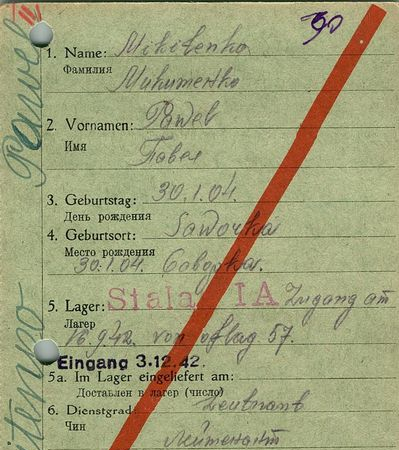 90
1. Name: Mikitenko
Фамилия Микитенко
2. Vornamen: Pawel
Имя Павел
3. Geburtstag: 30.1.04.
День рождения
4. Geburtsort: Sawovka
Место рождения
30.1.04. Савовка.
5. Lager: Stala IA Zugang am
Лагер
16.9.42. von oflag 57.
Eingang 3.12.42.
5a. Im Lager eingeliefert am:
Доставлен в лагер (число)
6. Dienstgrad: Leutnant
Чин Лейтенант
Pawel